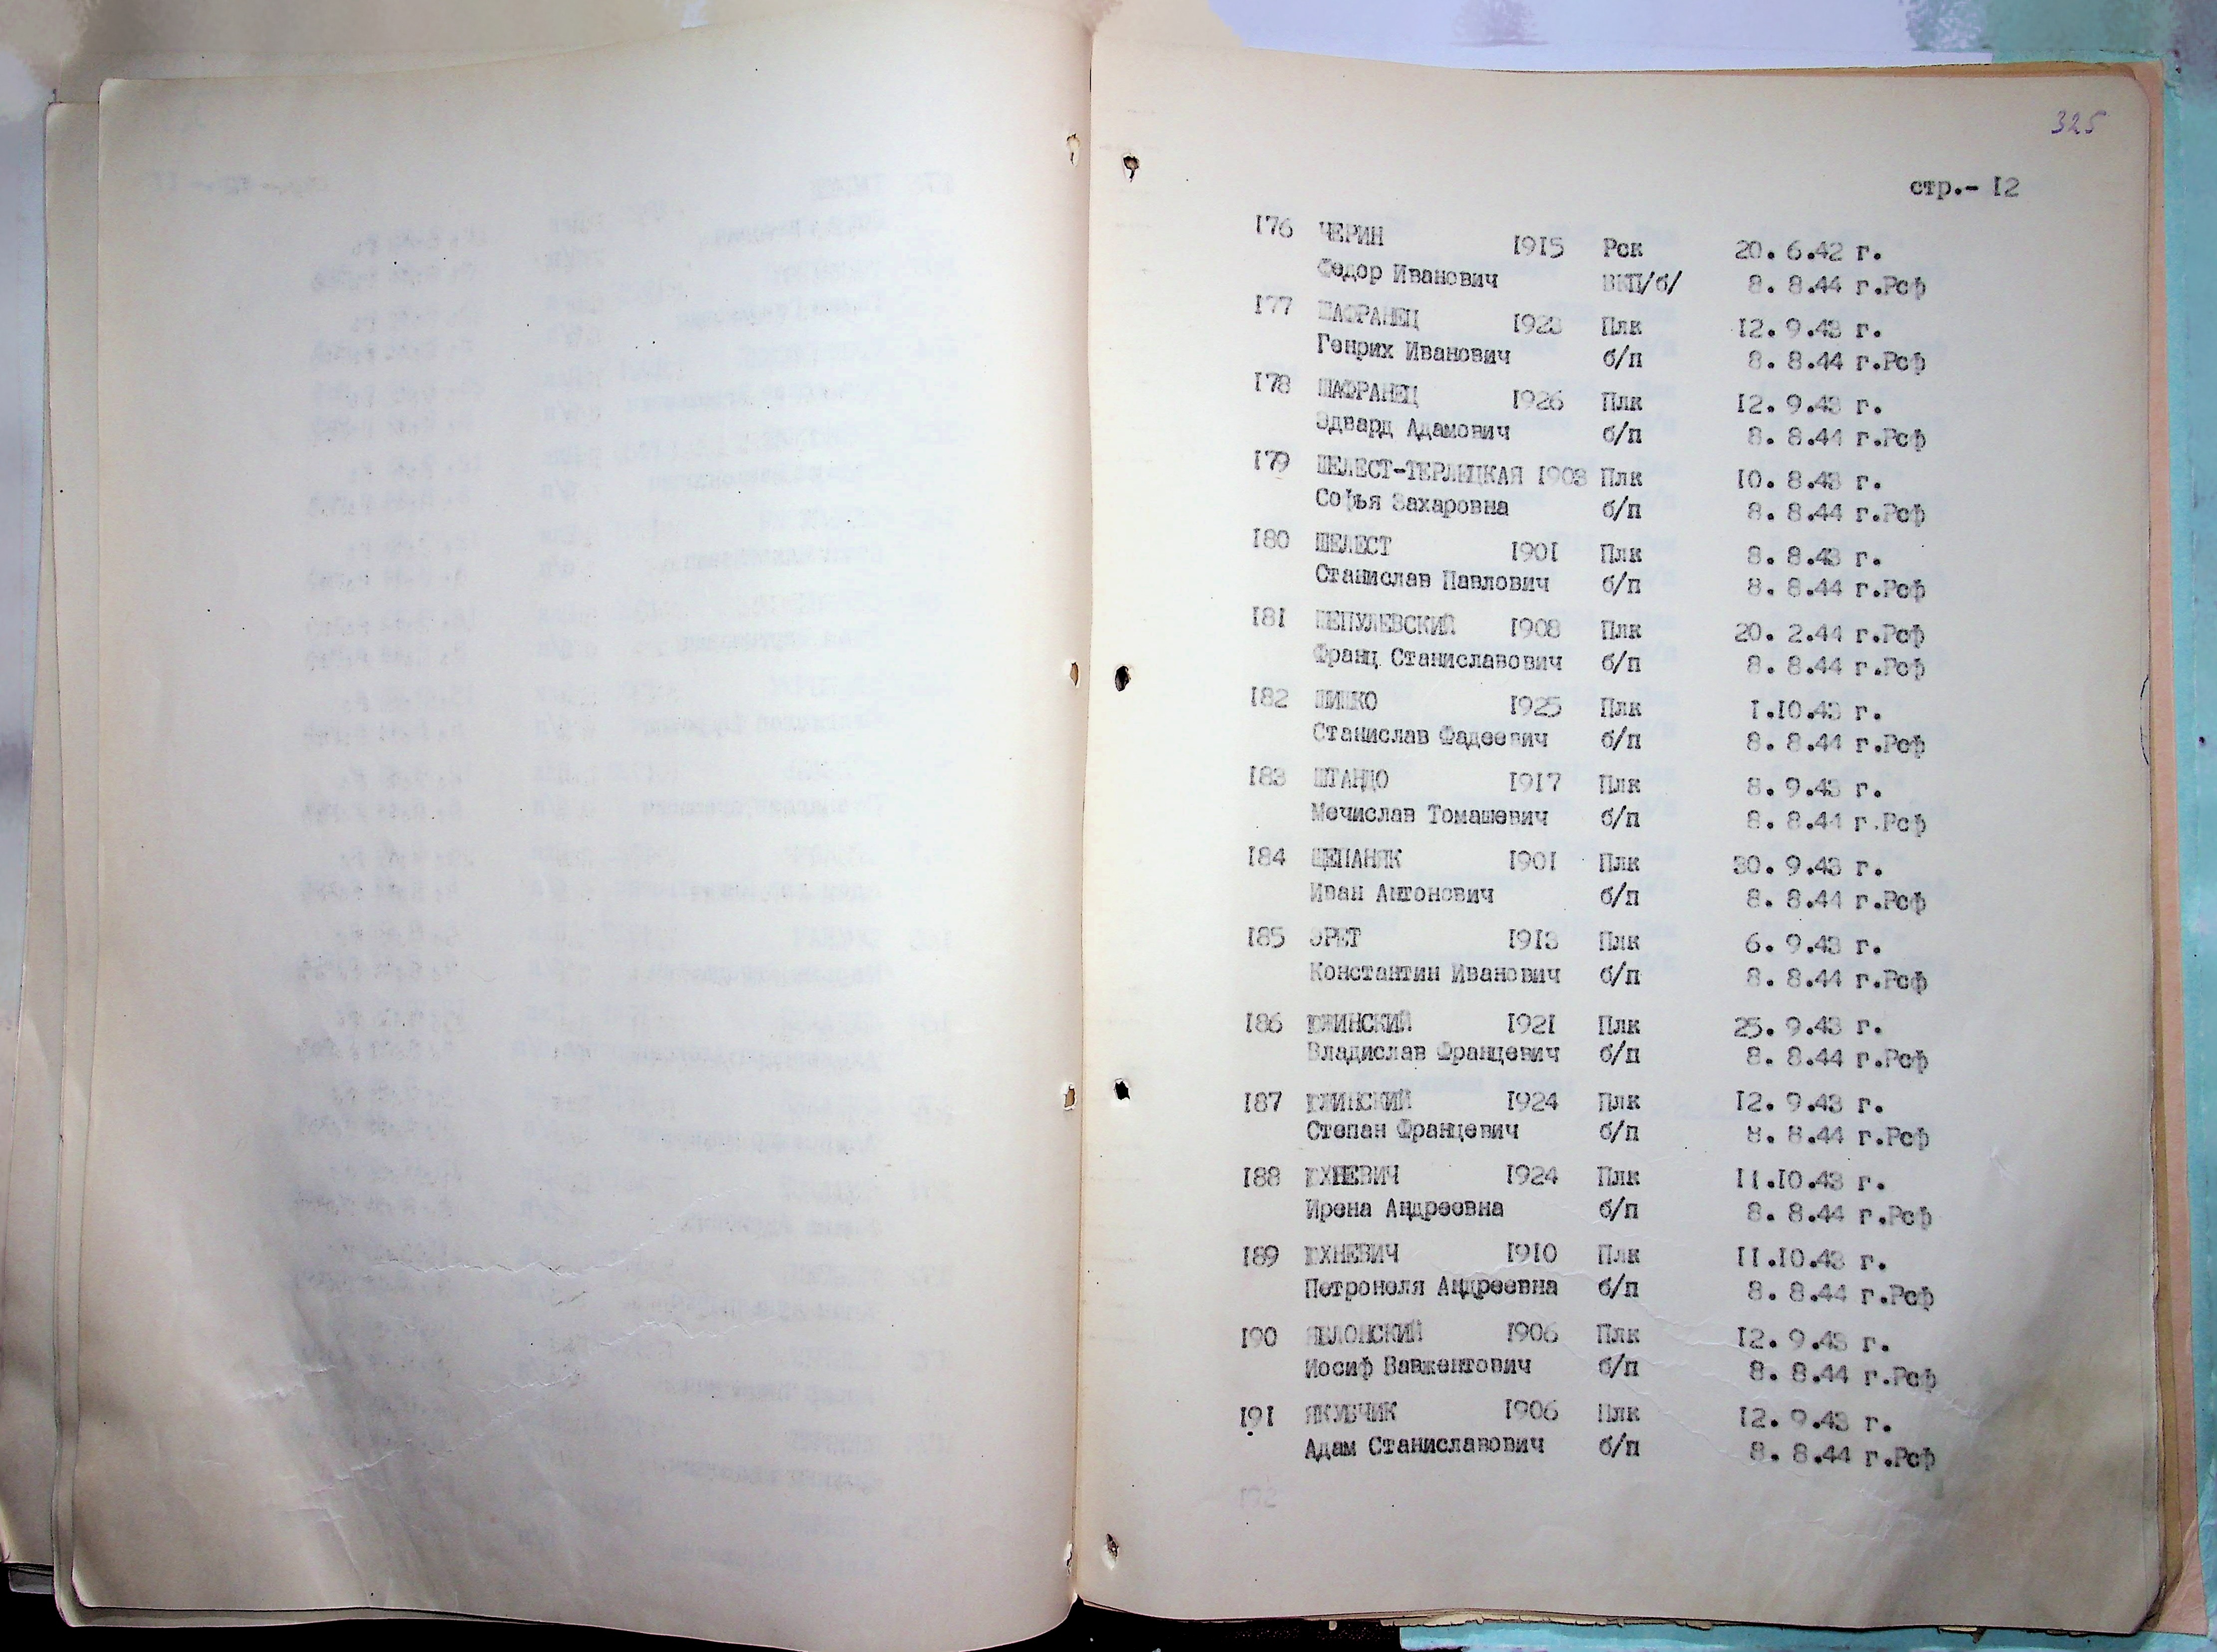 325
стр.- I2
I76 ЧЕРИН I9I5 Рск 20. 6.42 г.
Федор Иванович ВКП/б/ 8. 8.44 г.Рсф
I77 ШАФРАНЕЦ I923 Плк I2. 9.43 г.
Генрих Иванович б/п 8. 8.44 г.Рсф
I78 ШАФРАНЕЦ I926 Плк I2. 9.43 г.
Эдвард Адамович б/п 8. 8.44 г.Рсф
I79 ШЕЛЕСТ-ТЕРЛЕЦКАЯ I903 Плк I0. 8.43 г.
Софья Захаровна б/п 8. 8.44 г.Рсф
I80 ШЕЛЕСТ I90I Плк 8. 8.43 г.
Станислав Павлович б/п 8. 8.44 г.Рсф
I8I ШЕПУЛЕВСКИЙ I908 Плк 20. 2.44 г.Рсф
Франц Станиславович б/п 8. 8.44 г.Рсф
I82 ШИШКО I925 Плк I.I0.43 г.
Станислав Фадеевич б/п 8. 8.44 г.Рсф
I83 ШТАНДО I9I7 Плк 8. 9.43 г.
Мечислав Томашевич б/п 8. 8.44 г.Рсф
I84 ЩЕПАНЯК I90I Плк 30. 9.43 г.
Иван Антонович б/п 8. 8.44 г.Рсф
I85 ЭРЕТ I9I3 Плк 6. 9.43 г.
Константин Иванович б/п 8. 8.44 г.Рсф
I86 ЮЖИНСКИЙ I92I Плк 25. 9.43 г.
Владислав Францевич б/п 8. 8.44 г.Рсф
I87 ЮЖИНСКИЙ I924 Плк I2. 9.43 г.
Степан Францевич б/п 8. 8.44 г.Рсф
I88 ЮХНЕВИЧ I924 Плк II.I0.43 г.
Ирена Андреевна б/п 8. 8.44 г.Рсф
I89 ЮХНЕВИЧ I9I0 Плк II.I0.43 г.
Петронеля Андреевна б/п 8. 8.44 г.Рсф
I90 ЯБЛОНСКИЙ I906 Плк I2. 9.43 г.
Иосиф Вавжентович б/п 8. 8.44 г.Рсф
I9I ЯКУБЧИК I906 Плк I2. 9.43 г.
Адам Станиславович б/п 8. 8.44 г.Рсф
I92